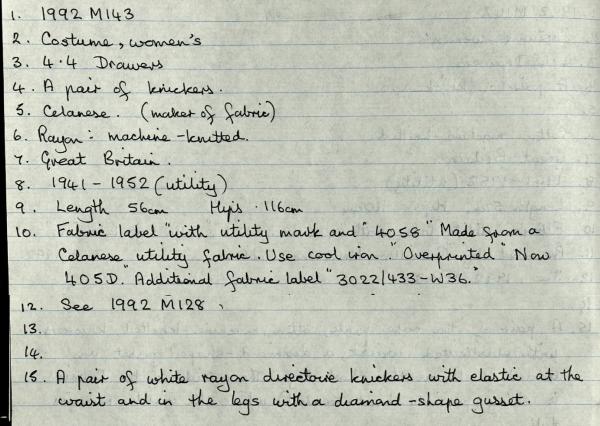 1. 1992 M143
2. Costume, women's
3. 4.4 Drawers
4. A pair of knickers.
5. Celanese. (maker of fabric)
6. Rayon: machine-knitted.
7. Great Britain.
8. 1941-1952 (utility)
9. Length 56cm Hips .116cm
10. Fabric label "with utility mark and "4058" Made from a
Celanese utility fabric. Use cool iron." Overprinted "Now
405D." Additional fabric label "3022/433-W36."
12. See 1992 M128
13.
14.
15. A pair of white rayon directoire knickers with elastic at the
waist and in the legs with a diamond-shape gusset.